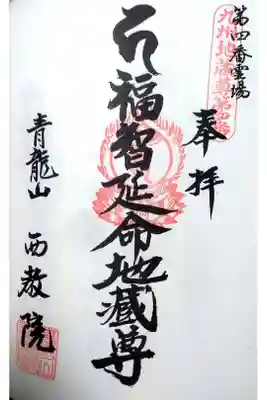 第四番靈場
九州地蔵尊第四番
奉拝
福智延命地蔵尊
青龍山 西教院